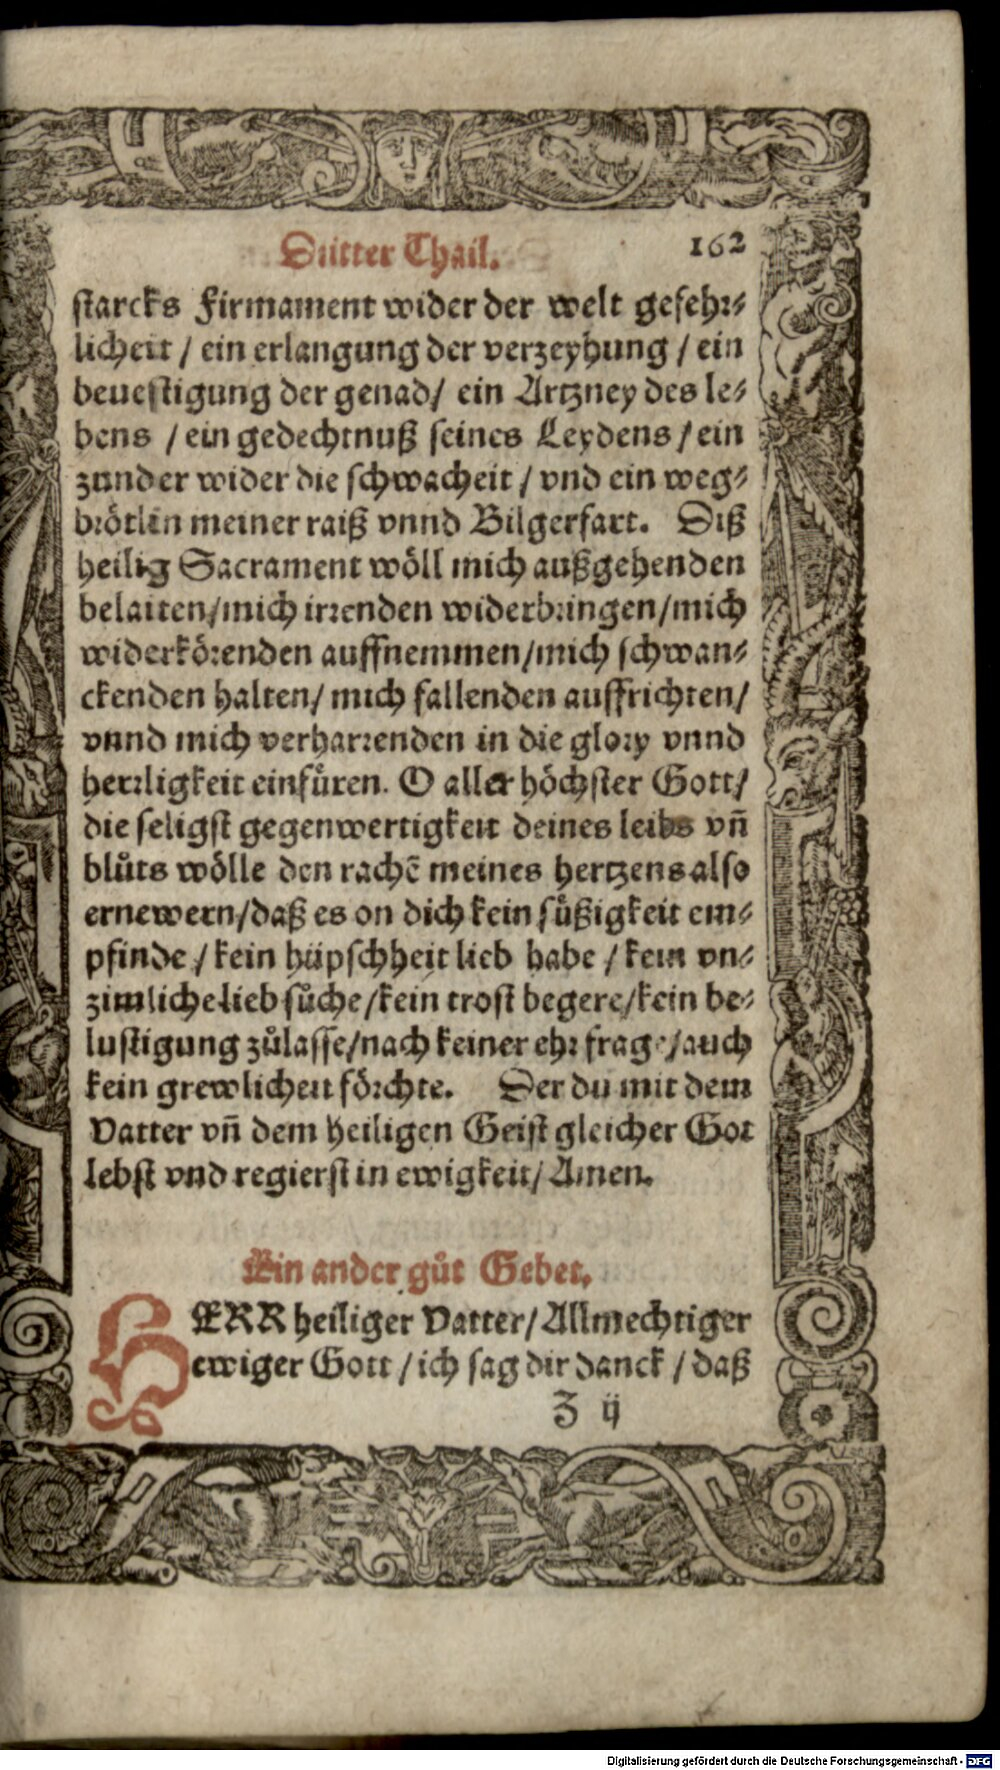 Dritter Thail. 162
starcks Firmament wider der welt gefehr⸗
licheit / ein erlangung der verzeyhung / ein
beuestigung der genad/ ein Artzney des le⸗
bens / ein gedechtnuß seines Leydens / ein
zunder wider die schwacheit / vnd ein weg⸗
brötlin meiner raiß vnnd Bilgerfart. Diß
heilig Sacrament wöll mich außgehenden
belaiten/mich irrenden widerbringen/mich
widerkörenden auffnemmen/mich schwan⸗
ckenden halten/ mich fallenden auffrichten/
vnnd mich verharrenden in die glory vnnd
herrligkeit einfüren. O aller höchster Gott/
die seligst gegenwertigkeit deines leibs vñ
blůts wölle den rachē meines hertzens also
ernewern/daß es on dich kein süßigkeit em⸗
pfinde / kein hüpschheit lieb habe / kein vn⸗
zimliche lieb sůche/kein trost begere/kein be⸗
lustigung zůlasse/nach keiner ehr frage/auch
kein grewlicheit förchte. Der du mit dem
Vatter vñ dem heiligen Geist gleicher Got
lebst vnd regierst in ewigkeit/ Amen.
Ein ander gůt Gebet.
HERR heiliger Vatter/ Allmechtiger
ewiger Gott / ich sag dir danck / daß
Z ij
Digitalisierung gefördert durch die Deutsche Forschungsgemeinschaft - DFG